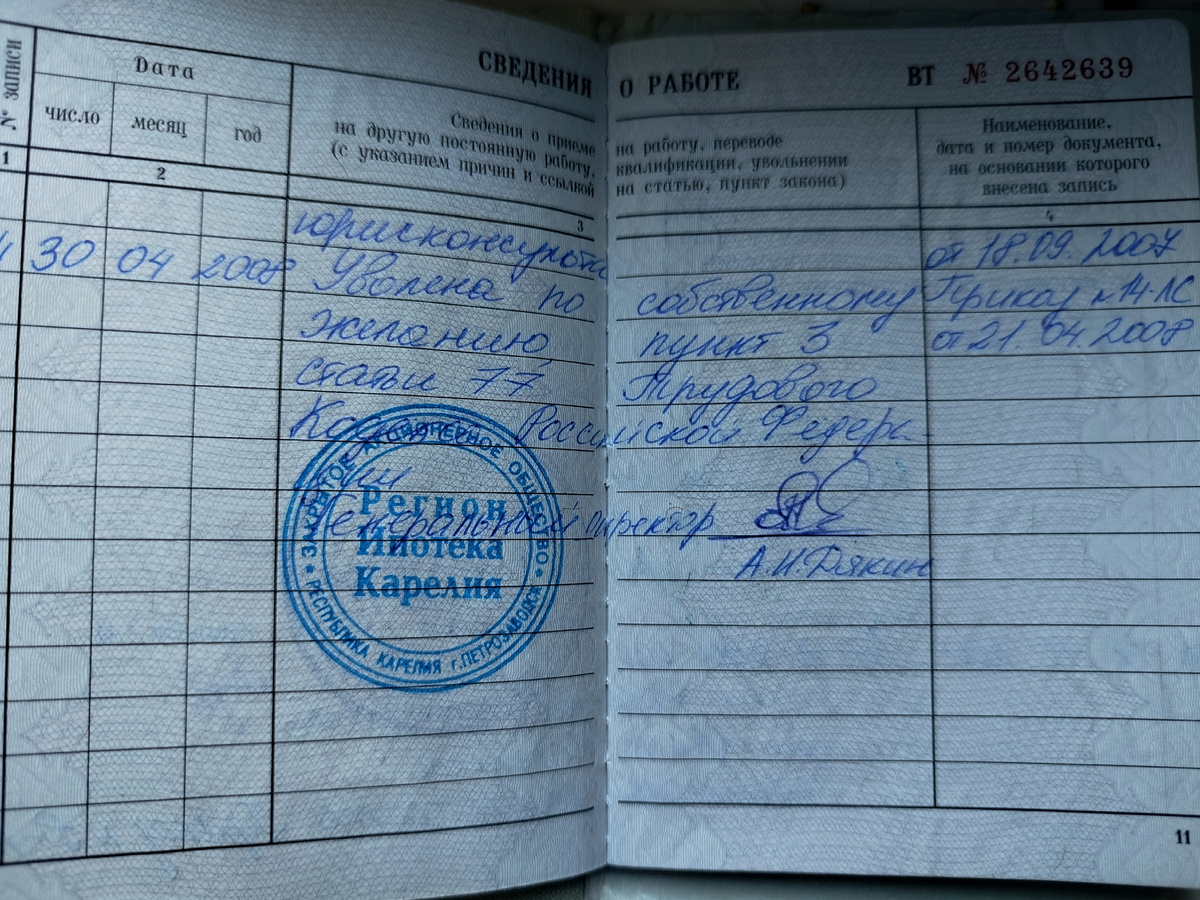 СВЕДЕНИЯ О РАБОТЕ
ВТ № 2642639
№ записи
Дата
число
месяц
год
Сведения о приеме на работу, переводе
на другую постоянную работу, квалификации, увольнении
(с указанием причин и ссылкой на статью, пункт закона)
Наименование,
дата и номер документа,
на основании которого
внесена запись
1
2
3
4
юрисконсульта
от 18.09.2007
30 04 2008 Уволена по собственному Приказ №14-ЛС
желанию, пункт 3 от 21.04.2008
статьи 77 Трудового
Российской Федера
ции
Генеральный директор
А.И.Дякин
ЗАКРЫТОЕ АКЦИОНЕРНОЕ ОБЩЕСТВО
Регион
Ипотека
Карелия
РЕСПУБЛИКА КАРЕЛИЯ г.ПЕТРОЗАВОДСК
11